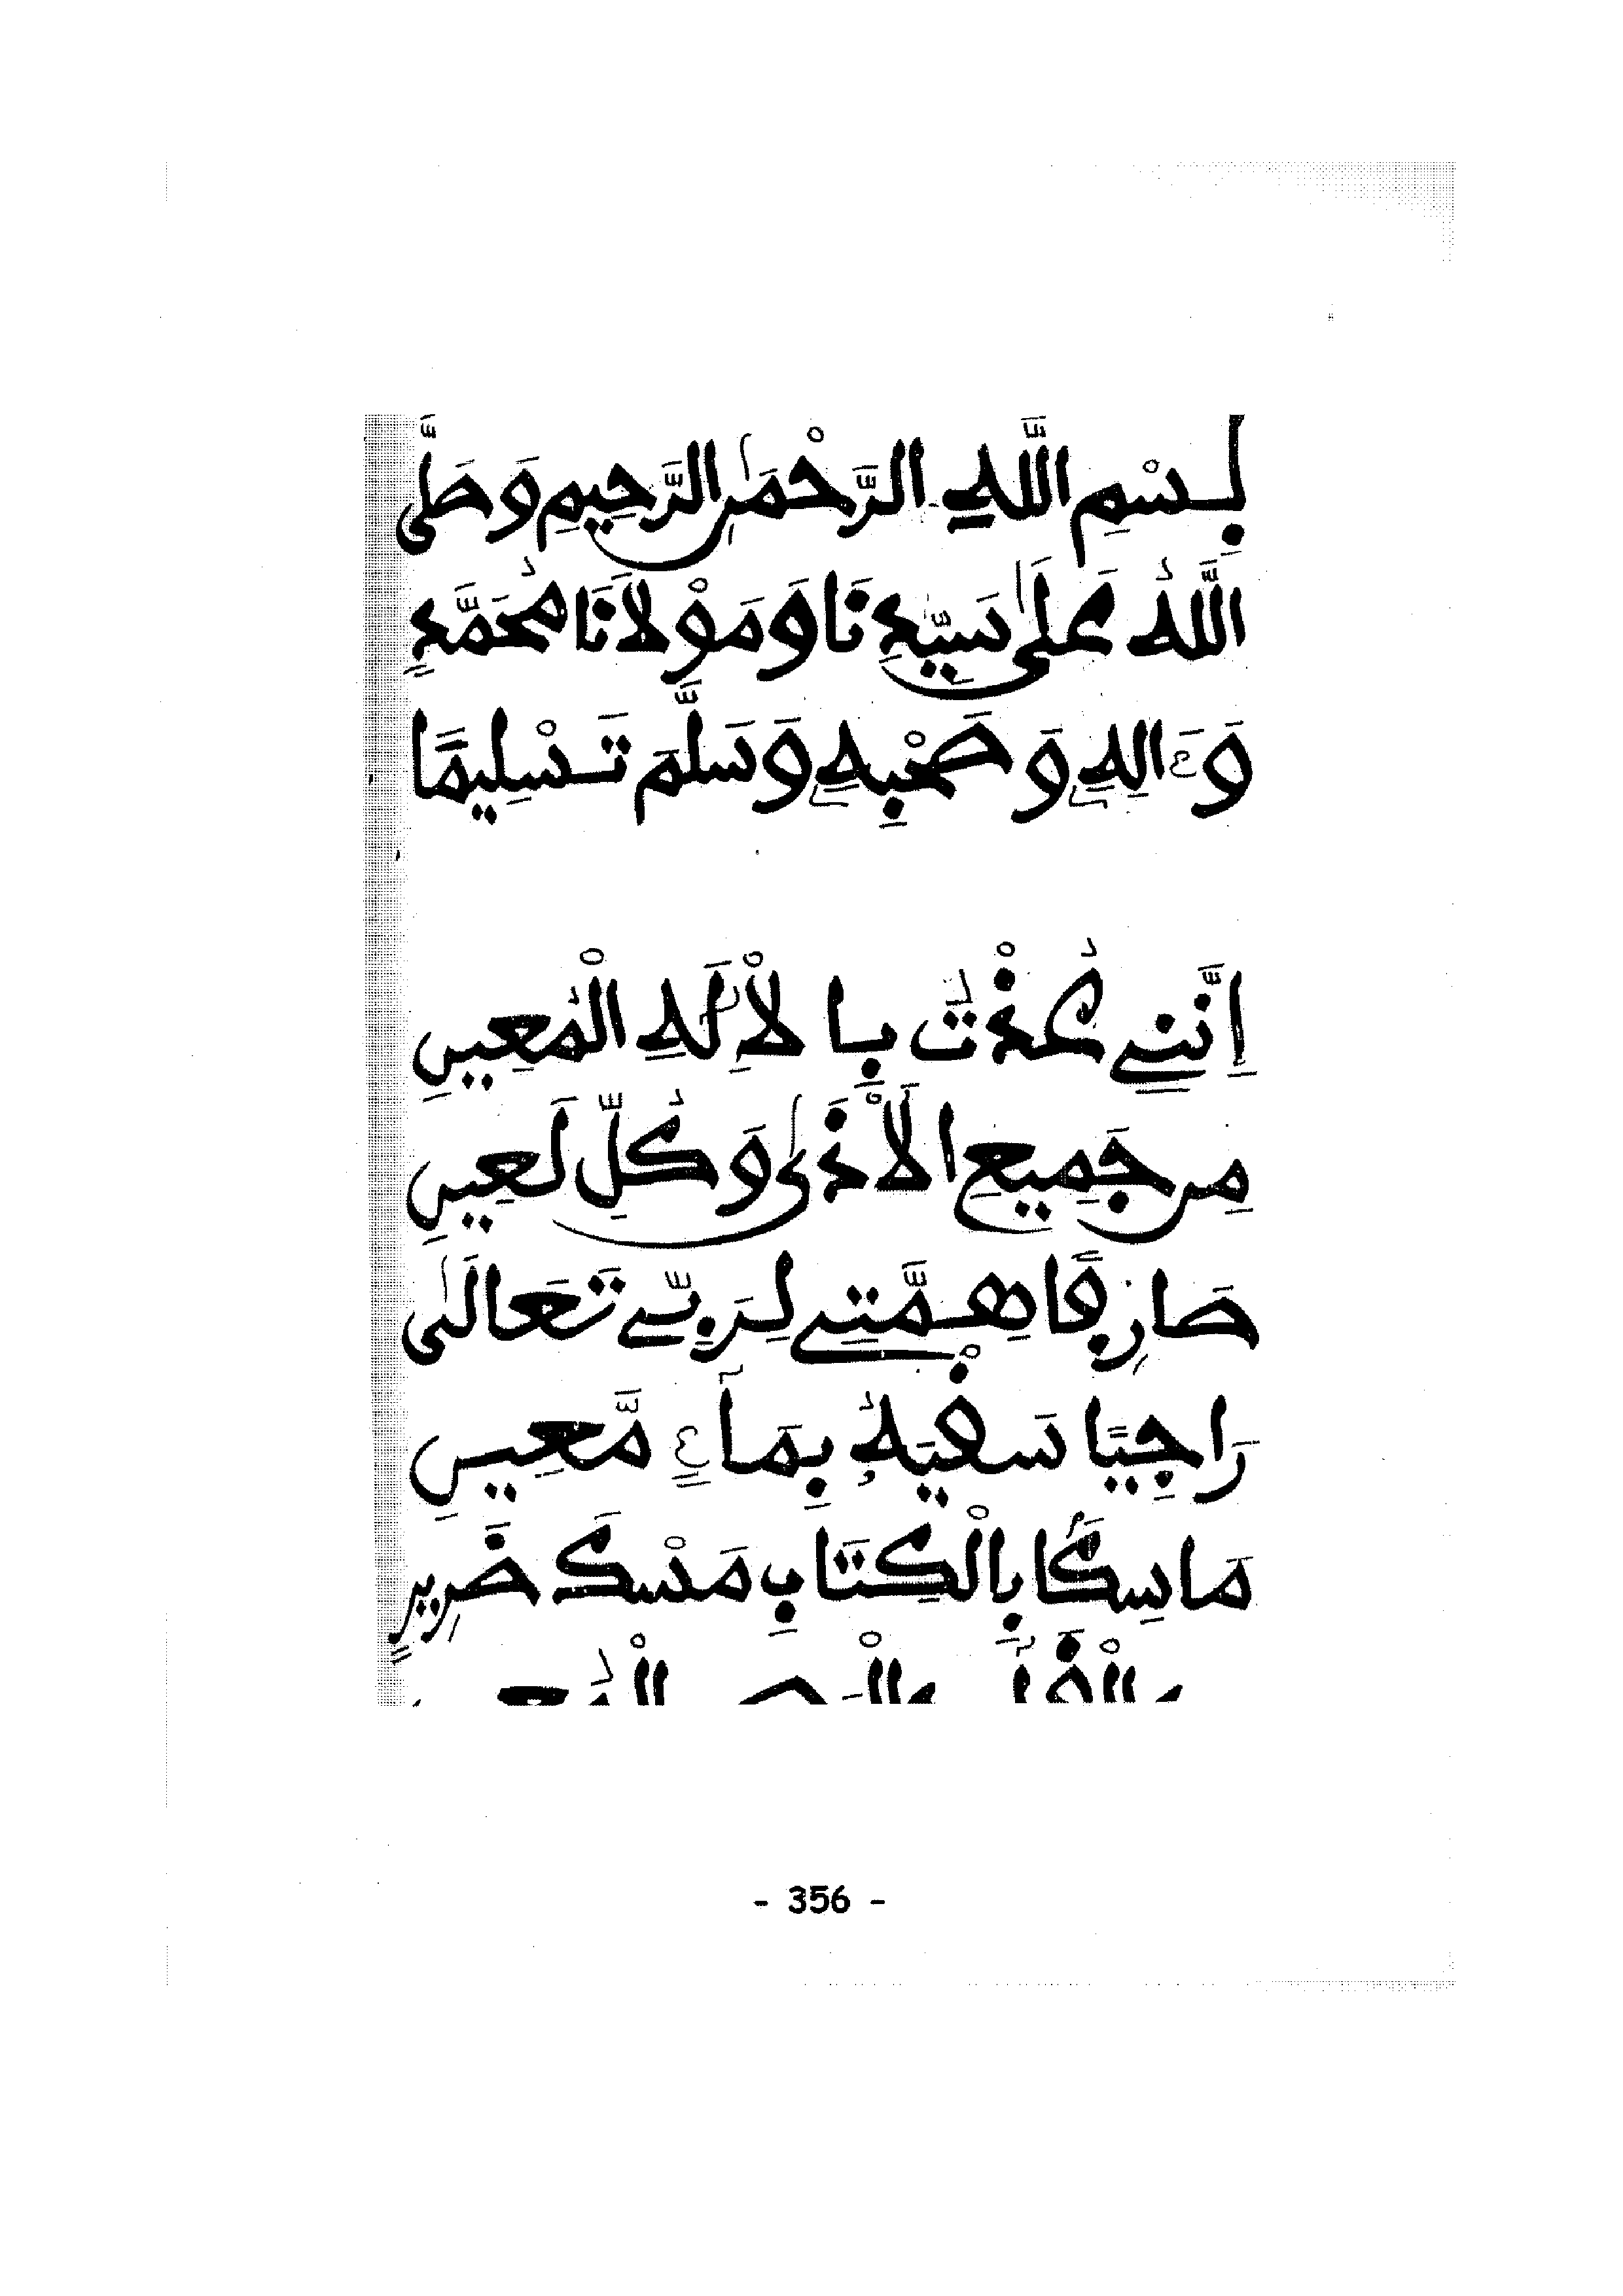 بِسْمِ اللَّهِ الرَّحْمَٰنِ الرَّحِيمِ وَصَلَّى
اللَّهُ عَلَىٰ سَيِّدِنَا وَمَوْلَانَا مُحَمَّدٍ
وَءَالِهِ وَصَحْبِهِ وَسَلَّمَ تَسْلِيمًا
إِنَّنِي عُذْتُ بِالْإِلَٰهِ الْمُعِينِ
مِن جَمِيعِ الْأَذَىٰ وَكُلِّ لَعِينِ
صَارِفًا هِمَّتِي لِرَبِّي تَعَالَىٰ
رَاجِيًا سَقْيَهُ بِمَآءٍ مَّعِينِ
مَاسِكًا بِالْكِتَابِ مَسْكَ ضَرِيرٍ
- 356 -